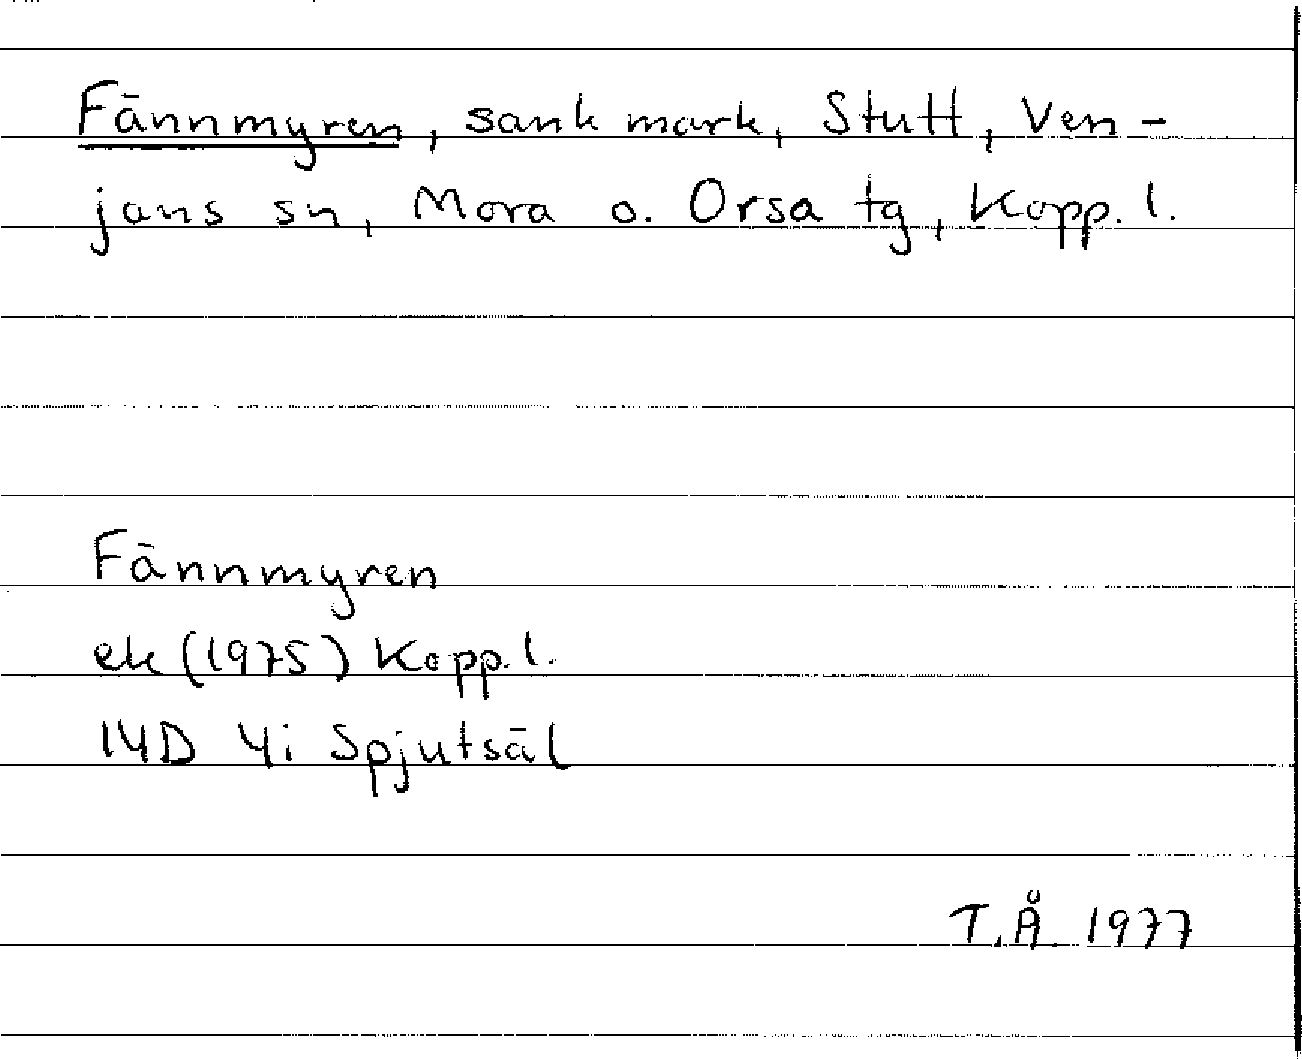 Fännmyren, sank mark, Stutt, Ven-
jans sn, Mora o. Orsa tg, Kopp. l.
Fännmyren
ek (1975) Kopp. l.
14D 4i Spjutsäl
T.Å. 1977